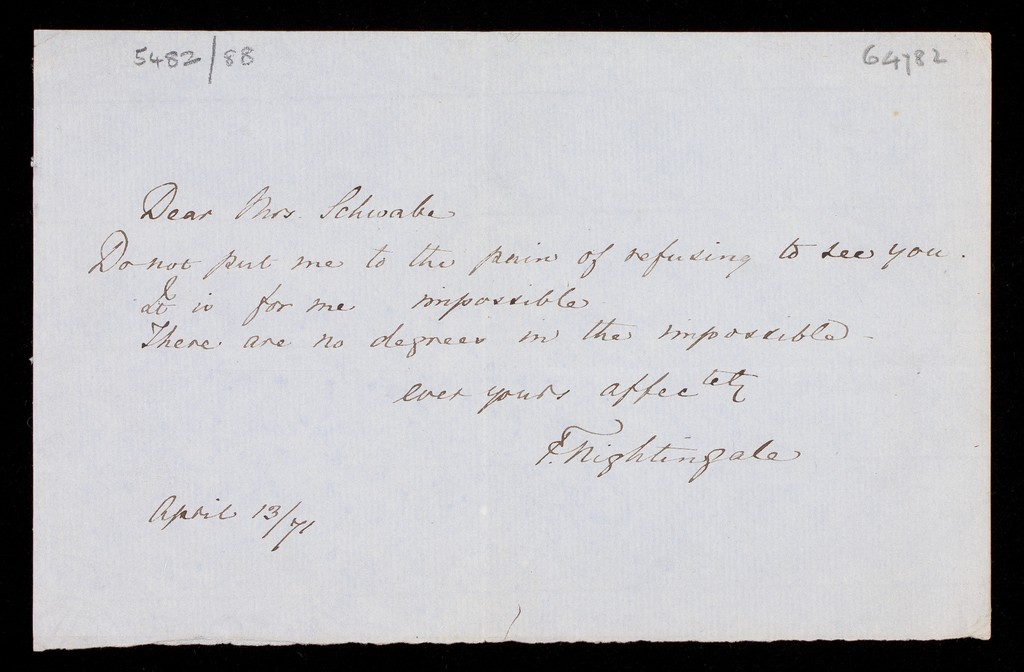 5482/88
64782
Dear Mrs. Schwabe
Do not put me to the pain of refusing to see you.
It is for me impossible
There are no degrees in the impossible -
ever yours affectely
F. Nightingale
April 13/71